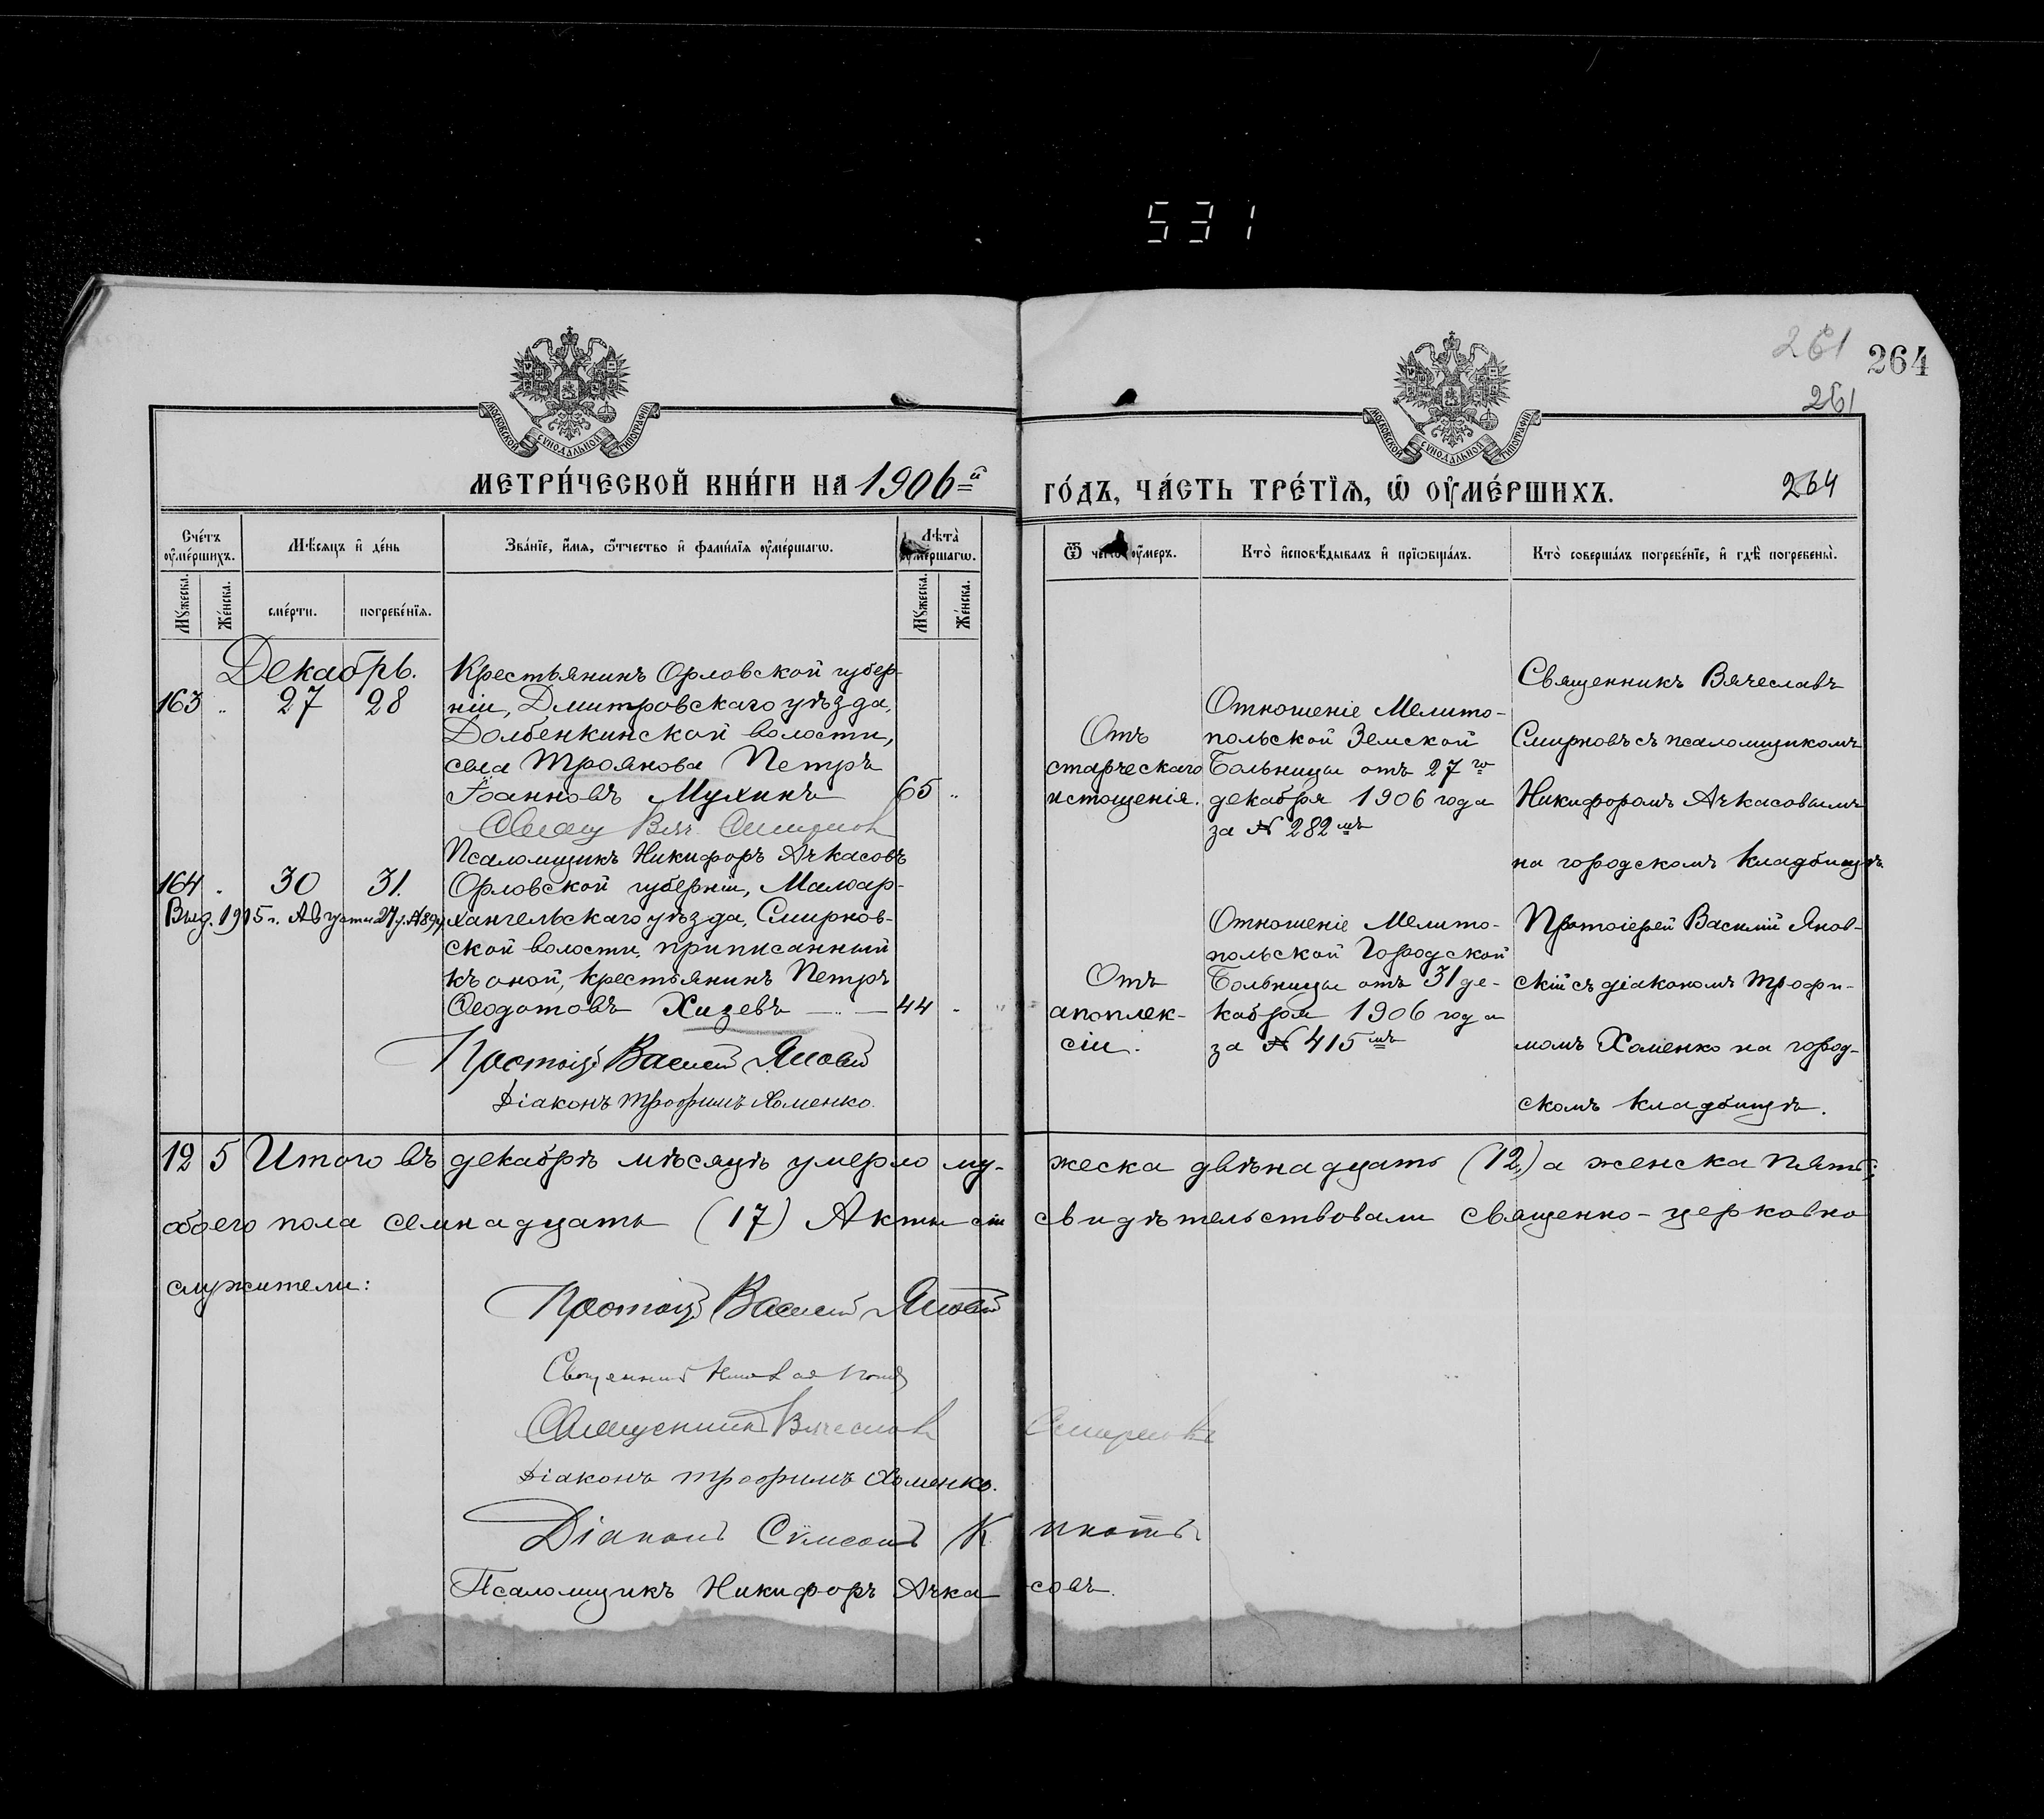 531
261
264
261
МОСКОВСКОЙ СѴНОДАЛЬНОЙ ТИПОГРАФІИ
МОСКОВСКОЙ СѴНОДАЛЬНОЙ ТИПОГРАФІИ
МЕТРИ́ЧЕСКОЙ КНИ́ГИ НА 1906=й
ГО́ДЪ, ЧА́СТЬ ТРЕ́ТІѦ, Ѡ ОУМЕ́РШИХЪ.
264
Сче́тъ оуме́ршихъ.
Мѣ́сяцъ и де́нь
Зва́ніе, и́мя, ѿтчество и фами́лія оуме́ршагѡ.
Лѣта̀ оуме́ршагѡ.
Мꙋ́жеска.
Же́нска.
сме́рти.
погребе́нїѧ.
Мꙋ́жеска.
Же́нска.
Ѿ чегѡ̀ оумеръ.
Кто̀ исповѣ́дывалъ и прїѡбща́лъ.
Кто̀ соверша́лъ погребе́нїе, и гдѣ̀ погребены̀.
Декабрь.
163 .. 27 28
Крестьянинъ Орловской губер-
ніи, Дмитровскаго уѣзда,
Долбенкинской волости,
села Троянова Петръ
Іоанновъ Мухинъ 65 ..
Свящ Вяч. Смирнов
Псаломщикъ Никифоръ Ачкасовъ
Отъ
старческаго
истощенія.
Отношеніе Мелито-
польской Земской
Больницы отъ 27го
декабря 1906 года
за № 282мъ
Священникъ Вячеславъ
Смирновъ съ псаломщикомъ
Никифоромъ Ачкасовымъ
на городскомъ кладбищѣ
164 . 30 31.
Выд. 1915 г. Августа 27 д. №
Орловской губерніи, Малоар-
хангельскаго уѣзда, Смирнов-
ской волости, приписанный
къ оной, крестьянинъ Петръ
Ѳеодотовъ Хизевъ 44 .
Протоіер Василий Яновский
Діаконъ Трофимъ Хоменко.
Отъ
апоплек-
сіи.
Отношеніе Мелито-
польской Городской
Больницы отъ 31 де-
кабря 1906 года
за № 415мъ
Протоіерей Василій Янов-
скій съ діакономъ Трофи-
момъ Хоменко на город-
скомъ кладбищѣ.
12 5 Итого въ декабрѣ мѣсяцѣ умерло му-
жеска двѣнадцать (12,) а женска пять;
обоего пола семнадцать (17) Акты сіи
свидѣтельствовали священно-церковно
служители:
Протоіер Василий Яновский
Священникъ
Священникъ Вячеслав Смирновъ
Діаконъ Трофимъ Хоменко.
Діаконъ Сѵмеонъ
Псаломщикъ Никифоръ Ачкасовъ.